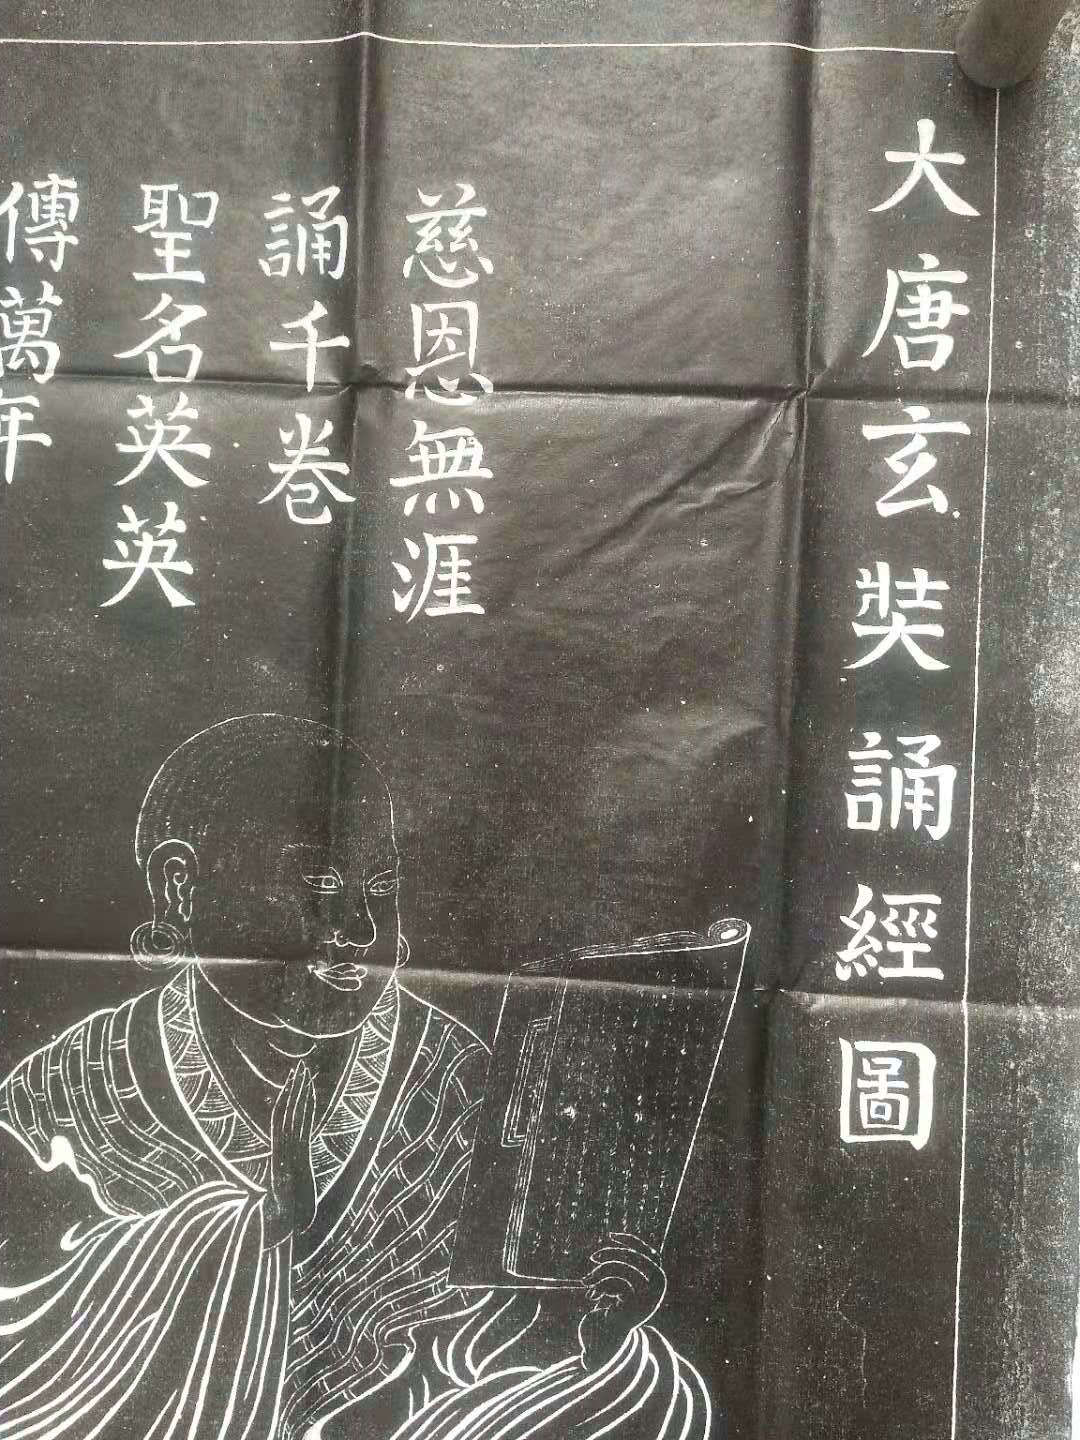 大唐玄奘誦經圖
慈恩無涯
誦千卷
聖名英英
傳萬年